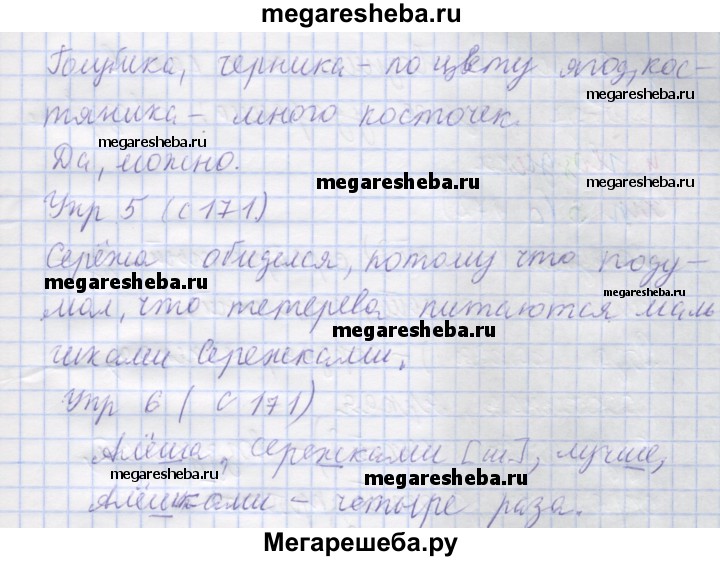 megaresheba.ru
Голубика, черника - по цвету ягод, кос-
тяника - много косточек.
megaresheba.ru
megaresheba.ru
Да, можно.
megaresheba.ru
megaresheba.ru
Упр 5 (с 171)
Серёжа обиделся, потому что поду-
megaresheba.ru
megaresheba.ru
мал, что тетерева питаются маль
megaresheba.ru
чиками Сережками.
Упр 6 (с 171)
Алёша, сережками [ш], лучше,
megaresheba.ru
megaresheba.ru
Алёшками - четыре раза.
megaresheba.ru
Мегарешеба.ру